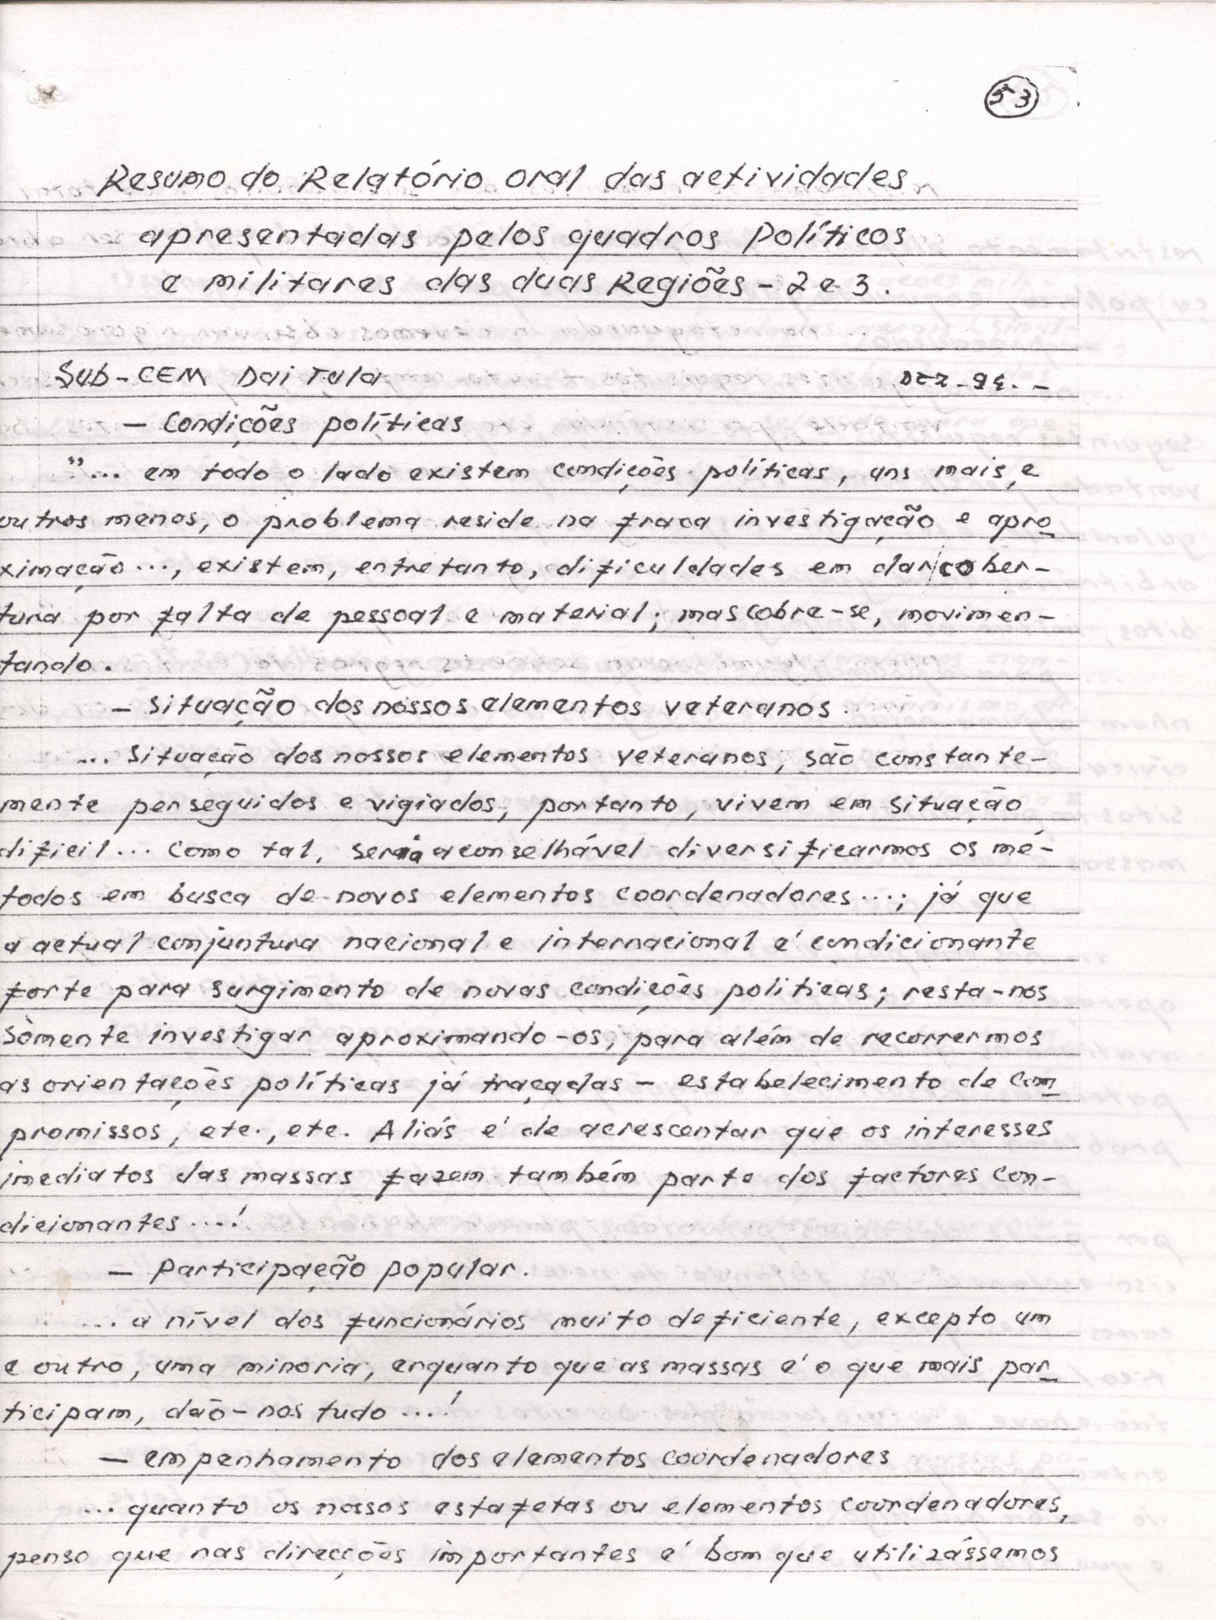 53
Resumo do Relatório oral das actividades
apresentadas pelos quadros políticos
e militares das duas Regiões - 2 e 3.
Sub-CEM Dai Tula Dez-94. -
- Condições políticas
"... em todo o lado existem condições políticas, uns mais, e
outros menos, o problema reside na fraca investigação e apro
ximação ..., existem, entretanto, dificuldades em dar cober-
tura por falta de pessoal e material; mas cobre-se, movimen-
tando.
- Situação dos nossos elementos veteranos.
... Situação dos nossos elementos veteranos, são constante-
mente perseguidos e vigiados, portanto, vivem em situação
difícil ... Como tal, seria aconselhável diversificarmos os mé-
todos em busca de novos elementos coordenadores ...; já que
a actual conjuntura nacional e internacional é condicionante
forte para surgimento de novas condições políticas; resta-nos
sòmente investigar aproximando-os, para além de recorrermos
as orientações políticas já traçadas - estabelecimento de com
promissos, etc., etc. Aliás é de acrescentar que os interesses
imediatos das massas fazem também parte dos factores con-
dicionantes ...!
- Participação popular.
... a nível dos funcionários muito deficiente, excepto um
e outro, uma minoria, enquanto que as massas é o que mais par
ticipam, dão-nos tudo ...!
- empenhamento dos elementos coordenadores
... quanto os nossos estafetas ou elementos coordenadores,
penso que nas direcções importantes é bom que utilizássemos